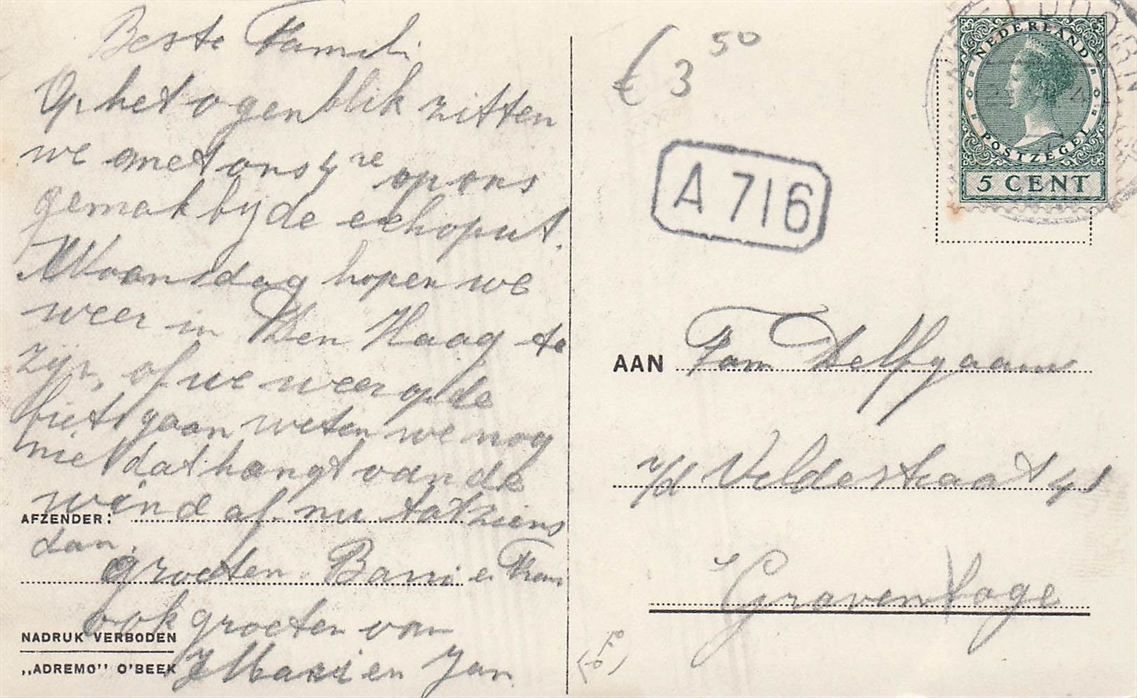 Beste Famili
Op het ogenblik zitten
we met ons 4re op ons
gemak bij de echoput.
Woansdag hopen we
weer in Den Haag te
zijn, of we weer op de
fiets gaan weten we nog
niet dat hangt van de
wind af. nu tot ziens
dan.
groeten Barri e Fran
ook groeten van
Marie en Jan
AFZENDER:
NADRUK VERBODEN
„ADREMO" O'BEEK
€ 3 50
A 716
NEDERLAND
POSTZEGEL
5 CENT
AAN Fam Delfgaauw
v/d Veldestraat 41
s Gravenhage